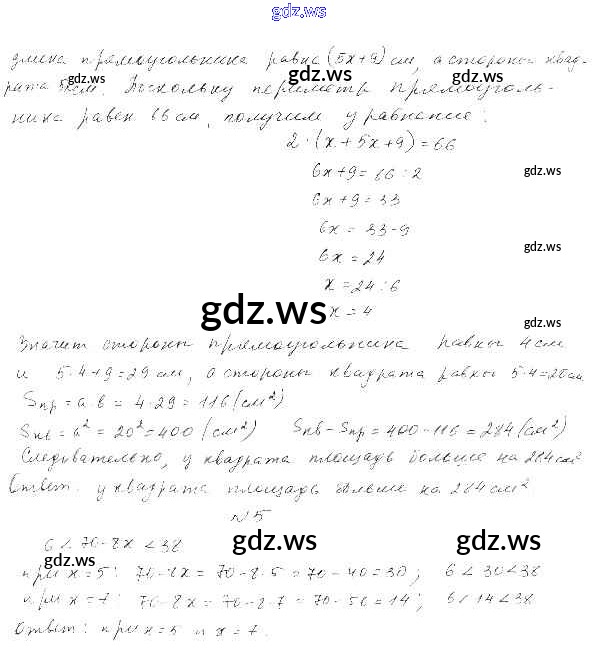 gdz.ws
длина прямоугольника равна (5x+9) см, а стороны квад-
gdz.ws gdz.ws gdz.ws
рата 5x см. Поскольку периметр прямоуголь-
ника равен 66 см, получим уравнение:
2·(x+5x+9)=66
6x+9=66:2
gdz.ws
6x+9=33
6x = 33-9
gdz.ws
6x = 24
x = 24:6
gdz.ws
x = 4
Значит стороны прямоугольника равны 4 см
и 5·4+9=29 см, а стороны квадрата равны 5·4=20 см.
Sпр = a·b = 4·29 = 116 (см²)
Sкв = a² = 20² = 400 (см²) Sкв - Sпр = 400-116 = 284 (см²)
Следовательно, у квадрата площадь больше на 284 см²
Ответ: у квадрата площадь больше на 284 см²
№5
6 < 70-8x < 38
gdz.ws gdz.ws gdz.ws
при x = 5: 70-8x = 70-8·5 = 70-40 = 30; 6 < 30 < 38
при x = 7: 70-8x = 70-8·7 = 70-56 = 14; 6 < 14 < 38
Ответ: при x = 5 и x = 7.
gdz.ws gdz.ws